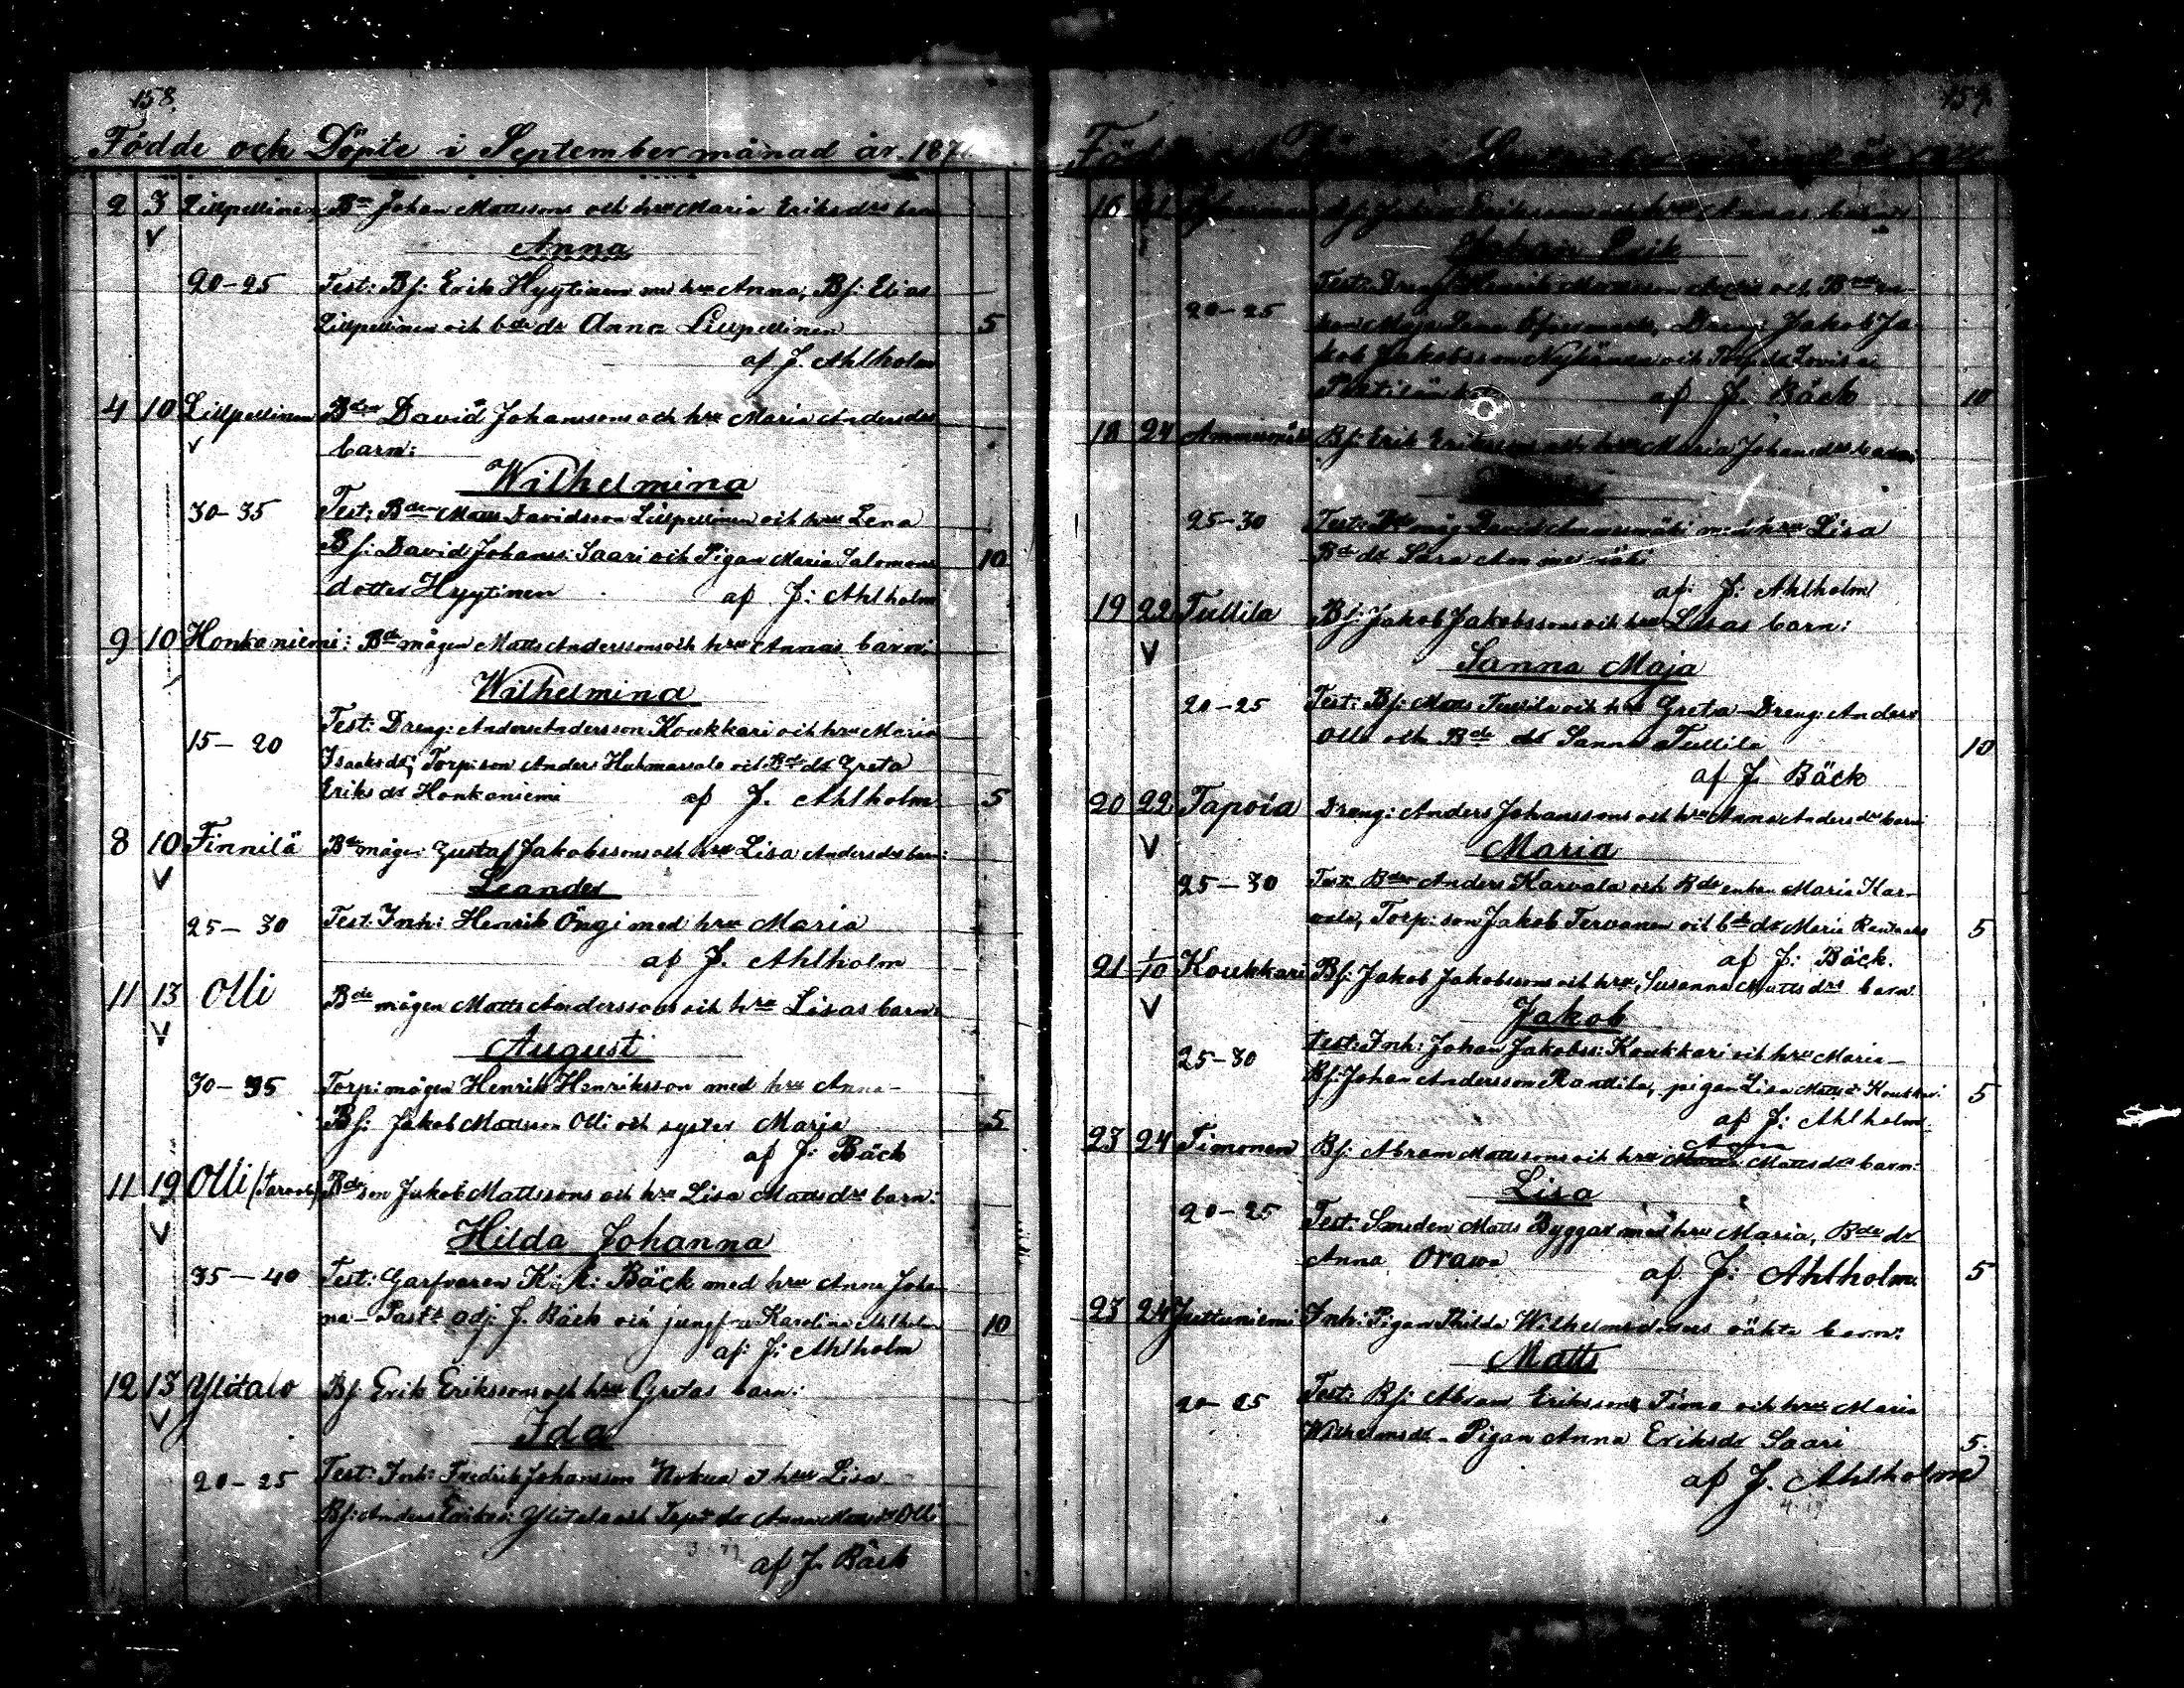 158.
Födde och Döpte i September månad år 187
2 3 Lillpellinen Bdn Johan Mattssons och hru Maria Eriksdrs barn
Anna
20-25 Test: Bf: Erik Hyytinen med hru Anna, Bf: Elias
Lillpellinen och bde dr Anna Lillpellinen 5
af J. Ahlholm
4 10 Lillpellinen Bden David Johanssons och hru Maria Andersdrs
barn:
Wilhelmina
30-35 Test: Bden Matts Davidsson Lillpellinen och hru Lena
Bf: David Johans: Saari och Pigan Maria Salomons 10
dotter Hyytinen af J: Ahlholm
9 10 Honkaniemi: Bde mågen Matts Anderssons och hru Annas barn:
Wilhelmina
15-20 Test: Dreng: Anders Andersson Koukkari och hru Maria
Isaksdr; Torp: son Anders och Bde dr Greta
Eriksdr Honkaniemi af J. Ahlholm 5
8 10 Finnilä Bde mågen Gustaf Jakobssons och hru Lisa Andersdrs barn:
Leander
25-30 Test: Inh: Henrik Öngi med hru Maria
af J. Ahlholm
11 13 Olli Bde mågen Matts Anderssons och hru Lisas barn:
August
30-35 Torp: mågen Henrik Henriksson med hru Anna-
Bf: Jakob Mattsson Olli och syster Maria 5
af J: Bäck
11 19 Olli Bde son Jakob Mattssons och hru Lisa Mattsdrs barn:
Hilda Johanna
35-40 Test: Garfvaren K: A: Bäck med hru Anna Joha
na- Past: adj: J. Bäck och jungfru Karolina Ahlholm 10
af: J: Ahlholm
12 13 Ylitalo Bf: Erik Erikssons och hru Gretas barn:
Ida
20-25 Test: Inh: Fredrik Johansson Nokua o hru Lisa-
Bf: Anders Eriks: Ylitalo och dr Anna Matts dr Olli
af J. Bäck
159.
18 Bf: Johan Erikssons och hru Annas barn:
Erik
20-25 Test: Dreng Henrik Mattsson och Bde en-
kan Maja Lena Dreng Jakob Ja-
kob Jakobsson och Torp: dr Lovisa
af J. Bäck 10
18 24 Ammesmäki Bf: Erik Erikssons och hru Maria Johansdrs barn:
25-30 Test: Bde måg David Ammesmäki med hru Lisa
Bde dr Sara Ammesmäki
af: J: Ahlholm
19 22 Tullila Bf: Jakob Jakobssons och hru Lisas barn:
Sanna Maja
20-25 Test: Bf: Matts Tullila och hru Greta- Dreng: Anders
Olli och Bde dr Sanna Tullila 10
af J. Bäck
20 22 Tapoia Dreng: Anders Johanssons och hru Anna Andersdrs barn:
Maria
25-30 Test: Bden Anders Karvala och Bde enkan Maria Kar-
vala, Torp: son Jakob Tervonen och bde dr Maria 5
af J: Bäck.
21 1/10 Koukkari Bf: Jakob Jakobssons och hru Susanna Mattsdrs barn
Jakob
25-30 Test: Inh: Johan Jakobss: Koukkari och hru Maria-
Bf: Johan Andersson Randila, pigan Lisa Mattsdr Koukkari 5
af J: Ahlholm
23 24 Timonen Bf: Abram Mattssons och hru Mattsdrs barn:
Lisa
20-25 Test: Smeden Matts Byggar med hru Maria, Bde dr
Anna Orawa af. J: Ahlholm. 5
23 24 Juttuniemi Inh: Pigan Hilda Wilhelmsdotters oäkta barn:
Matts
20-25 Test: Bf: Abram Eriksson Timo och hru Maria
Wilhelmsdr- Pigan Anna Eriksdr Saari 5.
af J. Ahlholm